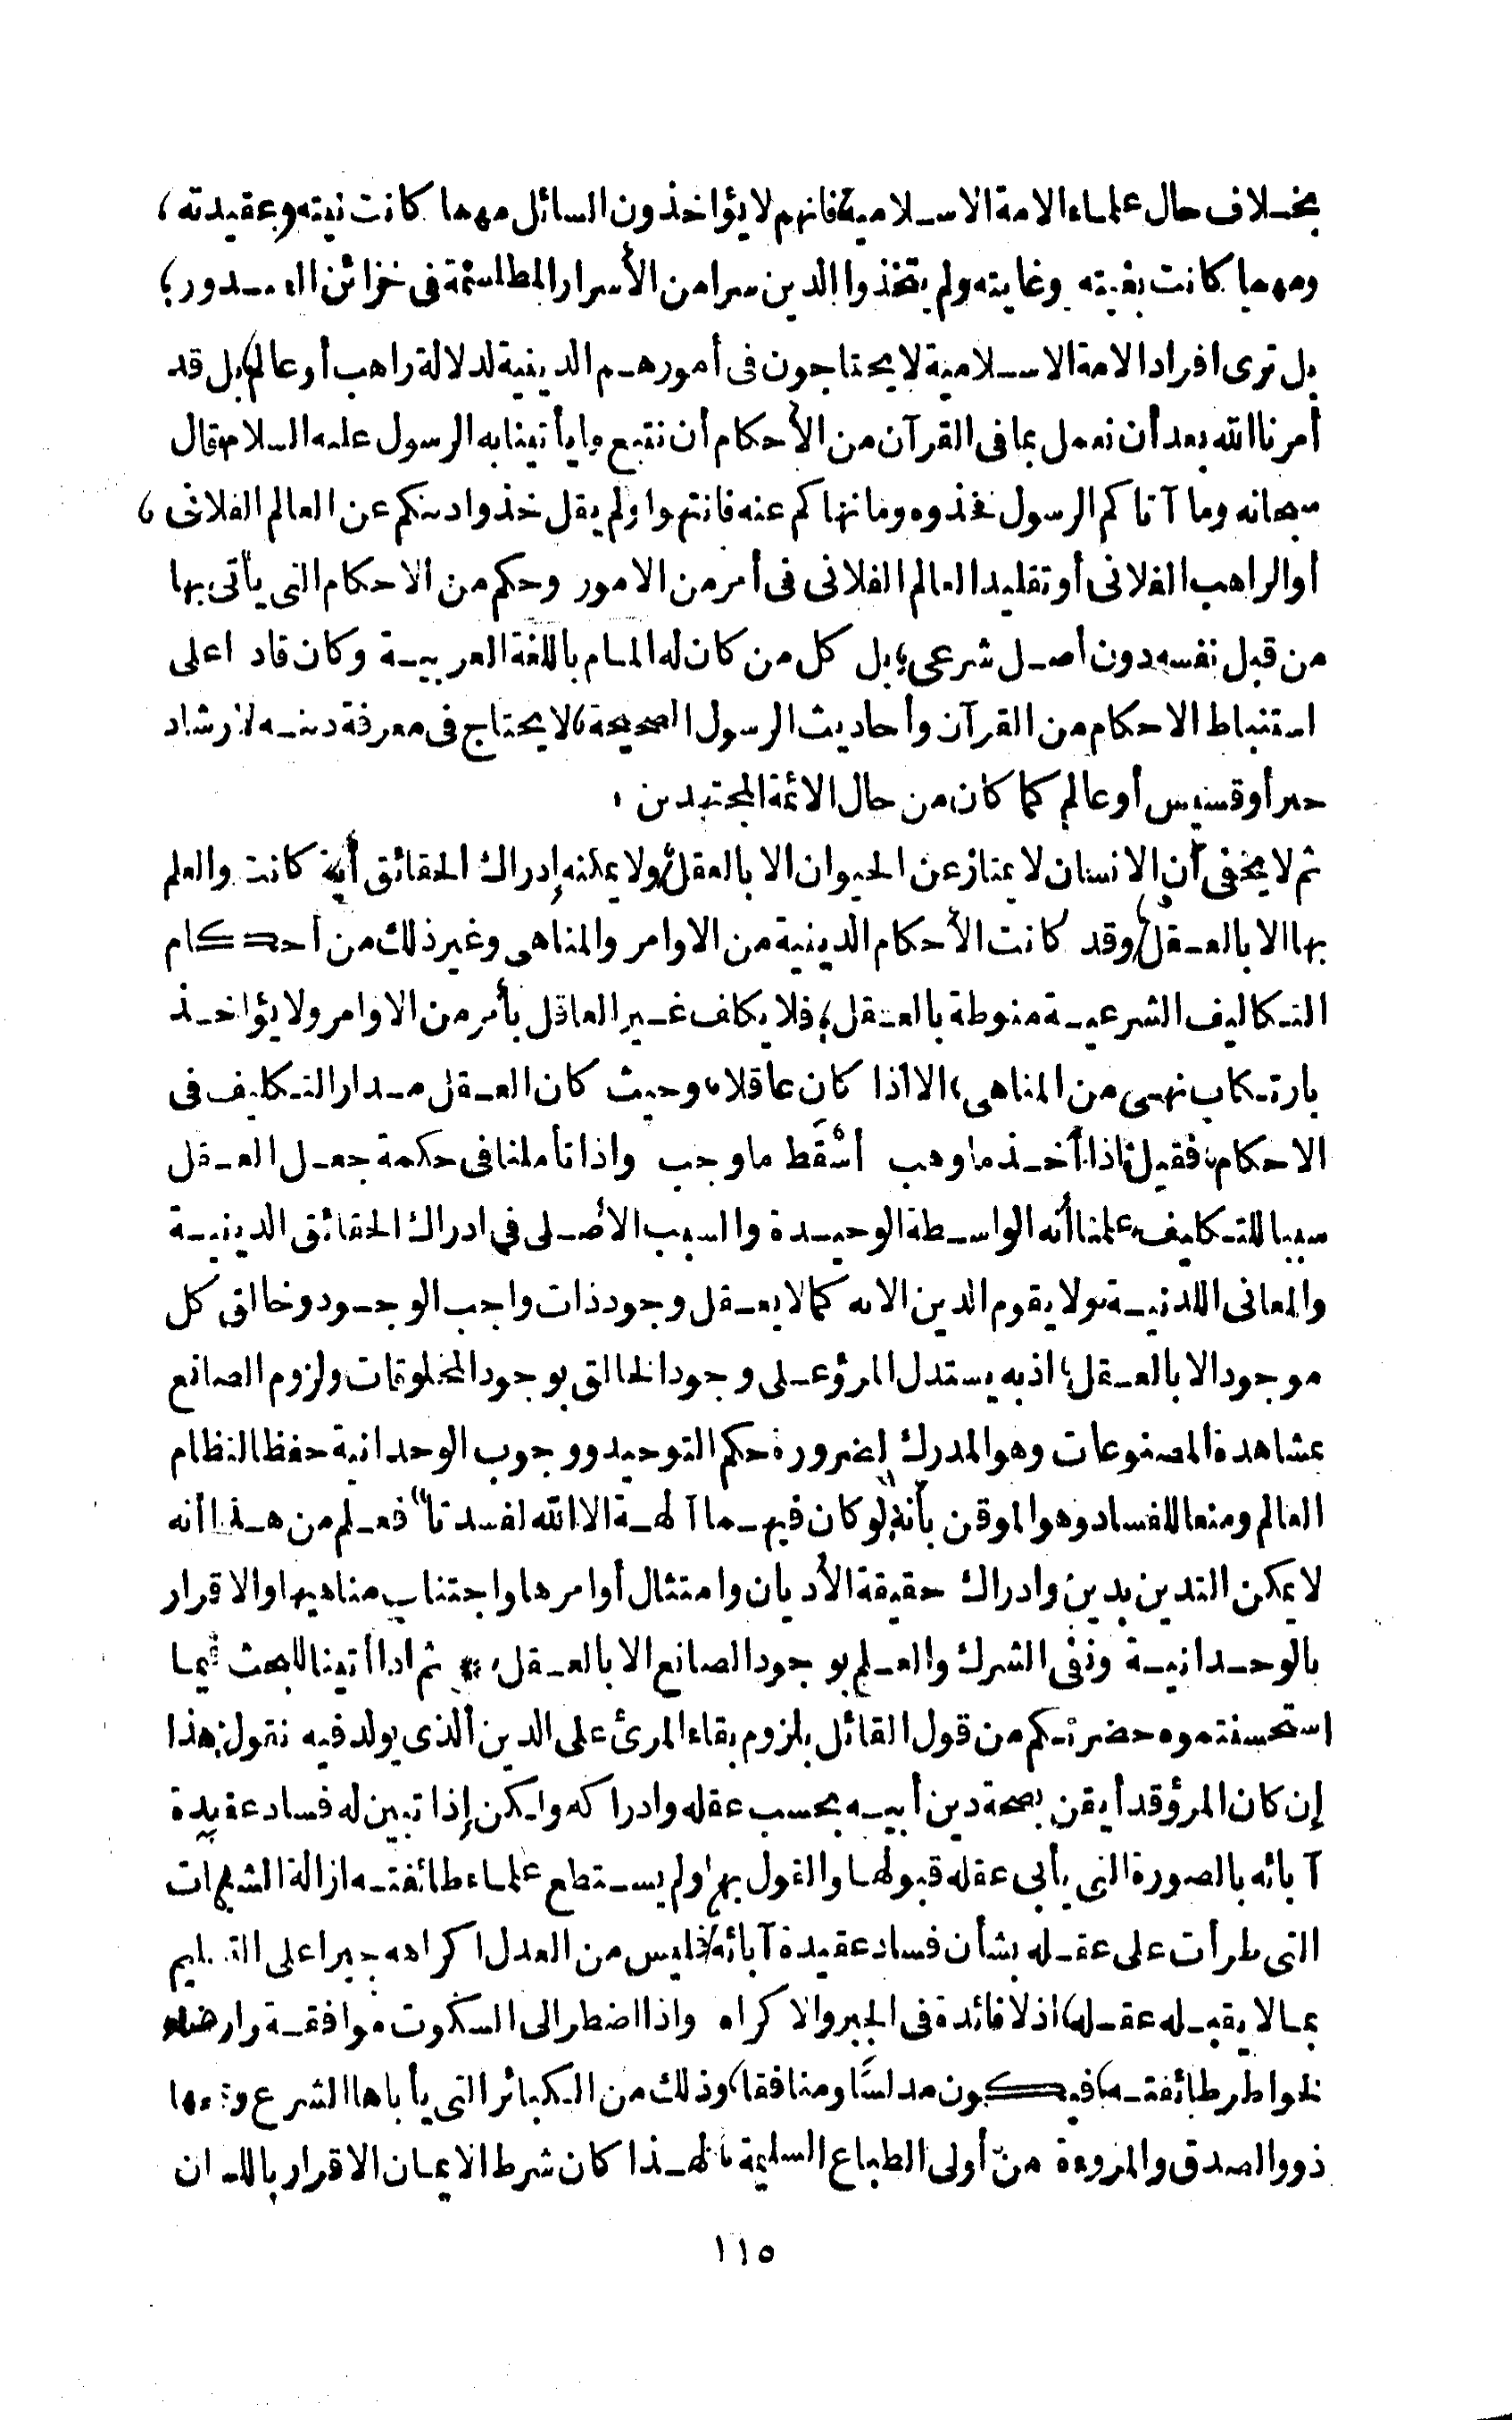 بخلاف حال علماء الامة الاسلامية فانهم لا يؤاخذون السائل مهما كانت نيته وعقيدته ،
ومهما كانت بغيته وغايته ولم يتخذوا الدين سرا من الأسرار المطلسمة فى خزائن الصدور ؛
بل ترى افراد الامة الاسلامية لا يحتاجون فى أمورهم الدينية لدلالة راهب أو عالم بل قد
أمرنا الله بعد أن نعمل بما فى القرآن من الأحكام أن نتبع ما يأتينا به الرسول عليه السلام قال
سبحانه وما آتاكم الرسول فخذوه وما نهاكم عنه فانتهوا ولم يقل خذوا دينكم عن العالم الفلانى ،
أو الراهب الفلانى أو تقليد العالم الفلانى فى أمر من الامور وحكم من الاحكام التى يأتى بها
من قبل نفسه دون أصل شرعى ؛ بل كل من كان له المام باللغة العربية وكان قادرا على
استنباط الاحكام من القرآن وأحاديث الرسول الصحيحة ، لا يحتاج فى معرفة دينه لارشاد
حبر أو قسيس أو عالم كما كان من حال الائمة المجتهدين .
ثم لا يخفى أن الانسان لا يمتاز عن الحيوان الا بالعقل ، ولا يمكنه إدراك الحقائق أية كانت والعلم
بها الا بالعقل ، وقد كانت الأحكام الدينية من الاوامر والمناهى وغير ذلك من أحكام
التكاليف الشرعية منوطة بالعقل ؛ فلا يكلف غير العاقل بأمر من الاوامر ولا يؤاخذ
بارتكاب نهى من المناهى ، الا اذا كان عاقلا ، وحيث كان العقل مدار التكليف فى
الاحكام ، فقيل : اذا أخذ ما وهب أسْقَط ما وجب واذا تأملنا فى حكمة جعل العقل
سببا للتكليف علمنا أنه الواسطة الوحيدة والسبب الأصلى في ادراك الحقائق الدينية
والمعانى اللدنية ، ولا يقوم الدين الا به كما لا يعقل وجود ذات واجب الوجود وخالق كل
موجود الا بالعقل ؛ اذ به يستدل المرؤ على وجود الخالق بوجود المخلوقات ولزوم الصانع
بمشاهدة المصنوعات وهو المدرك لضرورة حكم التوحيد ووجوب الوحدانية حفظا لنظام
العالم ومنعا للفساد وهو الموقن بأنه "لو كان فيهما آلهة الا الله لفسدتا" فعلم من هذا أنه
لا يمكن التدين بدين وادراك حقيقة الأديان وامتثال أوامرها واجتناب مناهيها والاقرار
بالوحدانية ونفى الشرك والعلم بوجود الصانع الا بالعقل . * ثم اذا أتينا للبحث فيما
استحسنتموه حضرتكم من قول القائل بلزوم بقاء المرئ على الدين الذى يولد فيه نقول : هذا
إن كان المرؤ قد أيقن بصحة دين أبيه بحسب عقله وادراكه ولكن إذا تبين له فساد عقيدة
آبائه بالصورة التى يأبى عقله قبولها والقول بها ولم يستطع علماء طائفته ازالة الشبهات
التى طرأت على عقله بشأن فساد عقيدة آبائه ، فليس من العدل اكراهه جبرا على التسليم
بما لا يقبله عقله ، اذ لا فائدة فى الجبر والاكراه واذا اضطر الى السكوت موافقة وارضاء
لخواطر طائفته ، فيكون مدلسًا ومنافقا ، وذلك من الكبائر التى يأباها الشرع وذمها
ذوو الصدق والمروءة من أولى الطباع السليمة ، لهذا كان شرط الايمان الاقرار باللسان
١١٥